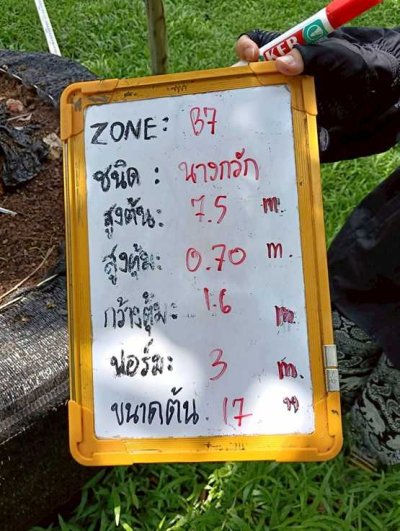 KER
ZONE: B7
ชนิด : นางกวัก
สูงต้น: 7.5 m.
สูงตุ้ม: 0.70 m.
กว้างตุ้ม: 1.6 m
ฟอร์ม: 3 m.
ขนาดต้น 17 "